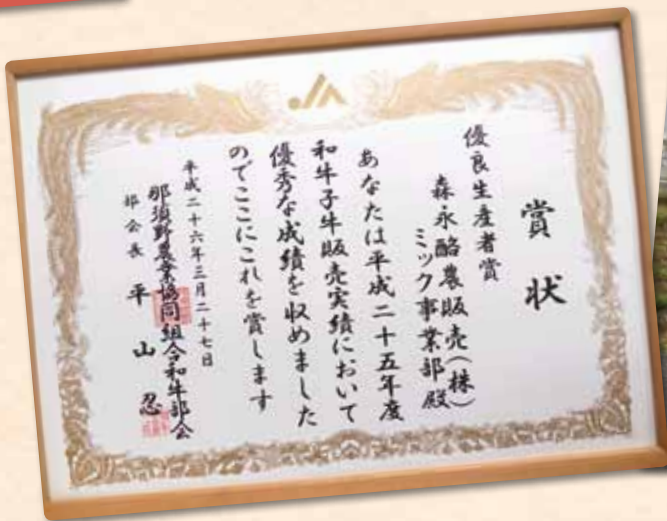 賞状
優良生産者賞
森永酪農販売(株)
ミック事業部殿
あなたは平成二十五年度
和牛子牛販売実績において
優秀な成績を収めました
のでここにこれを賞します
平成二十六年三月二十七日
那須野農業協同組合和牛部会
部会長 平山忍